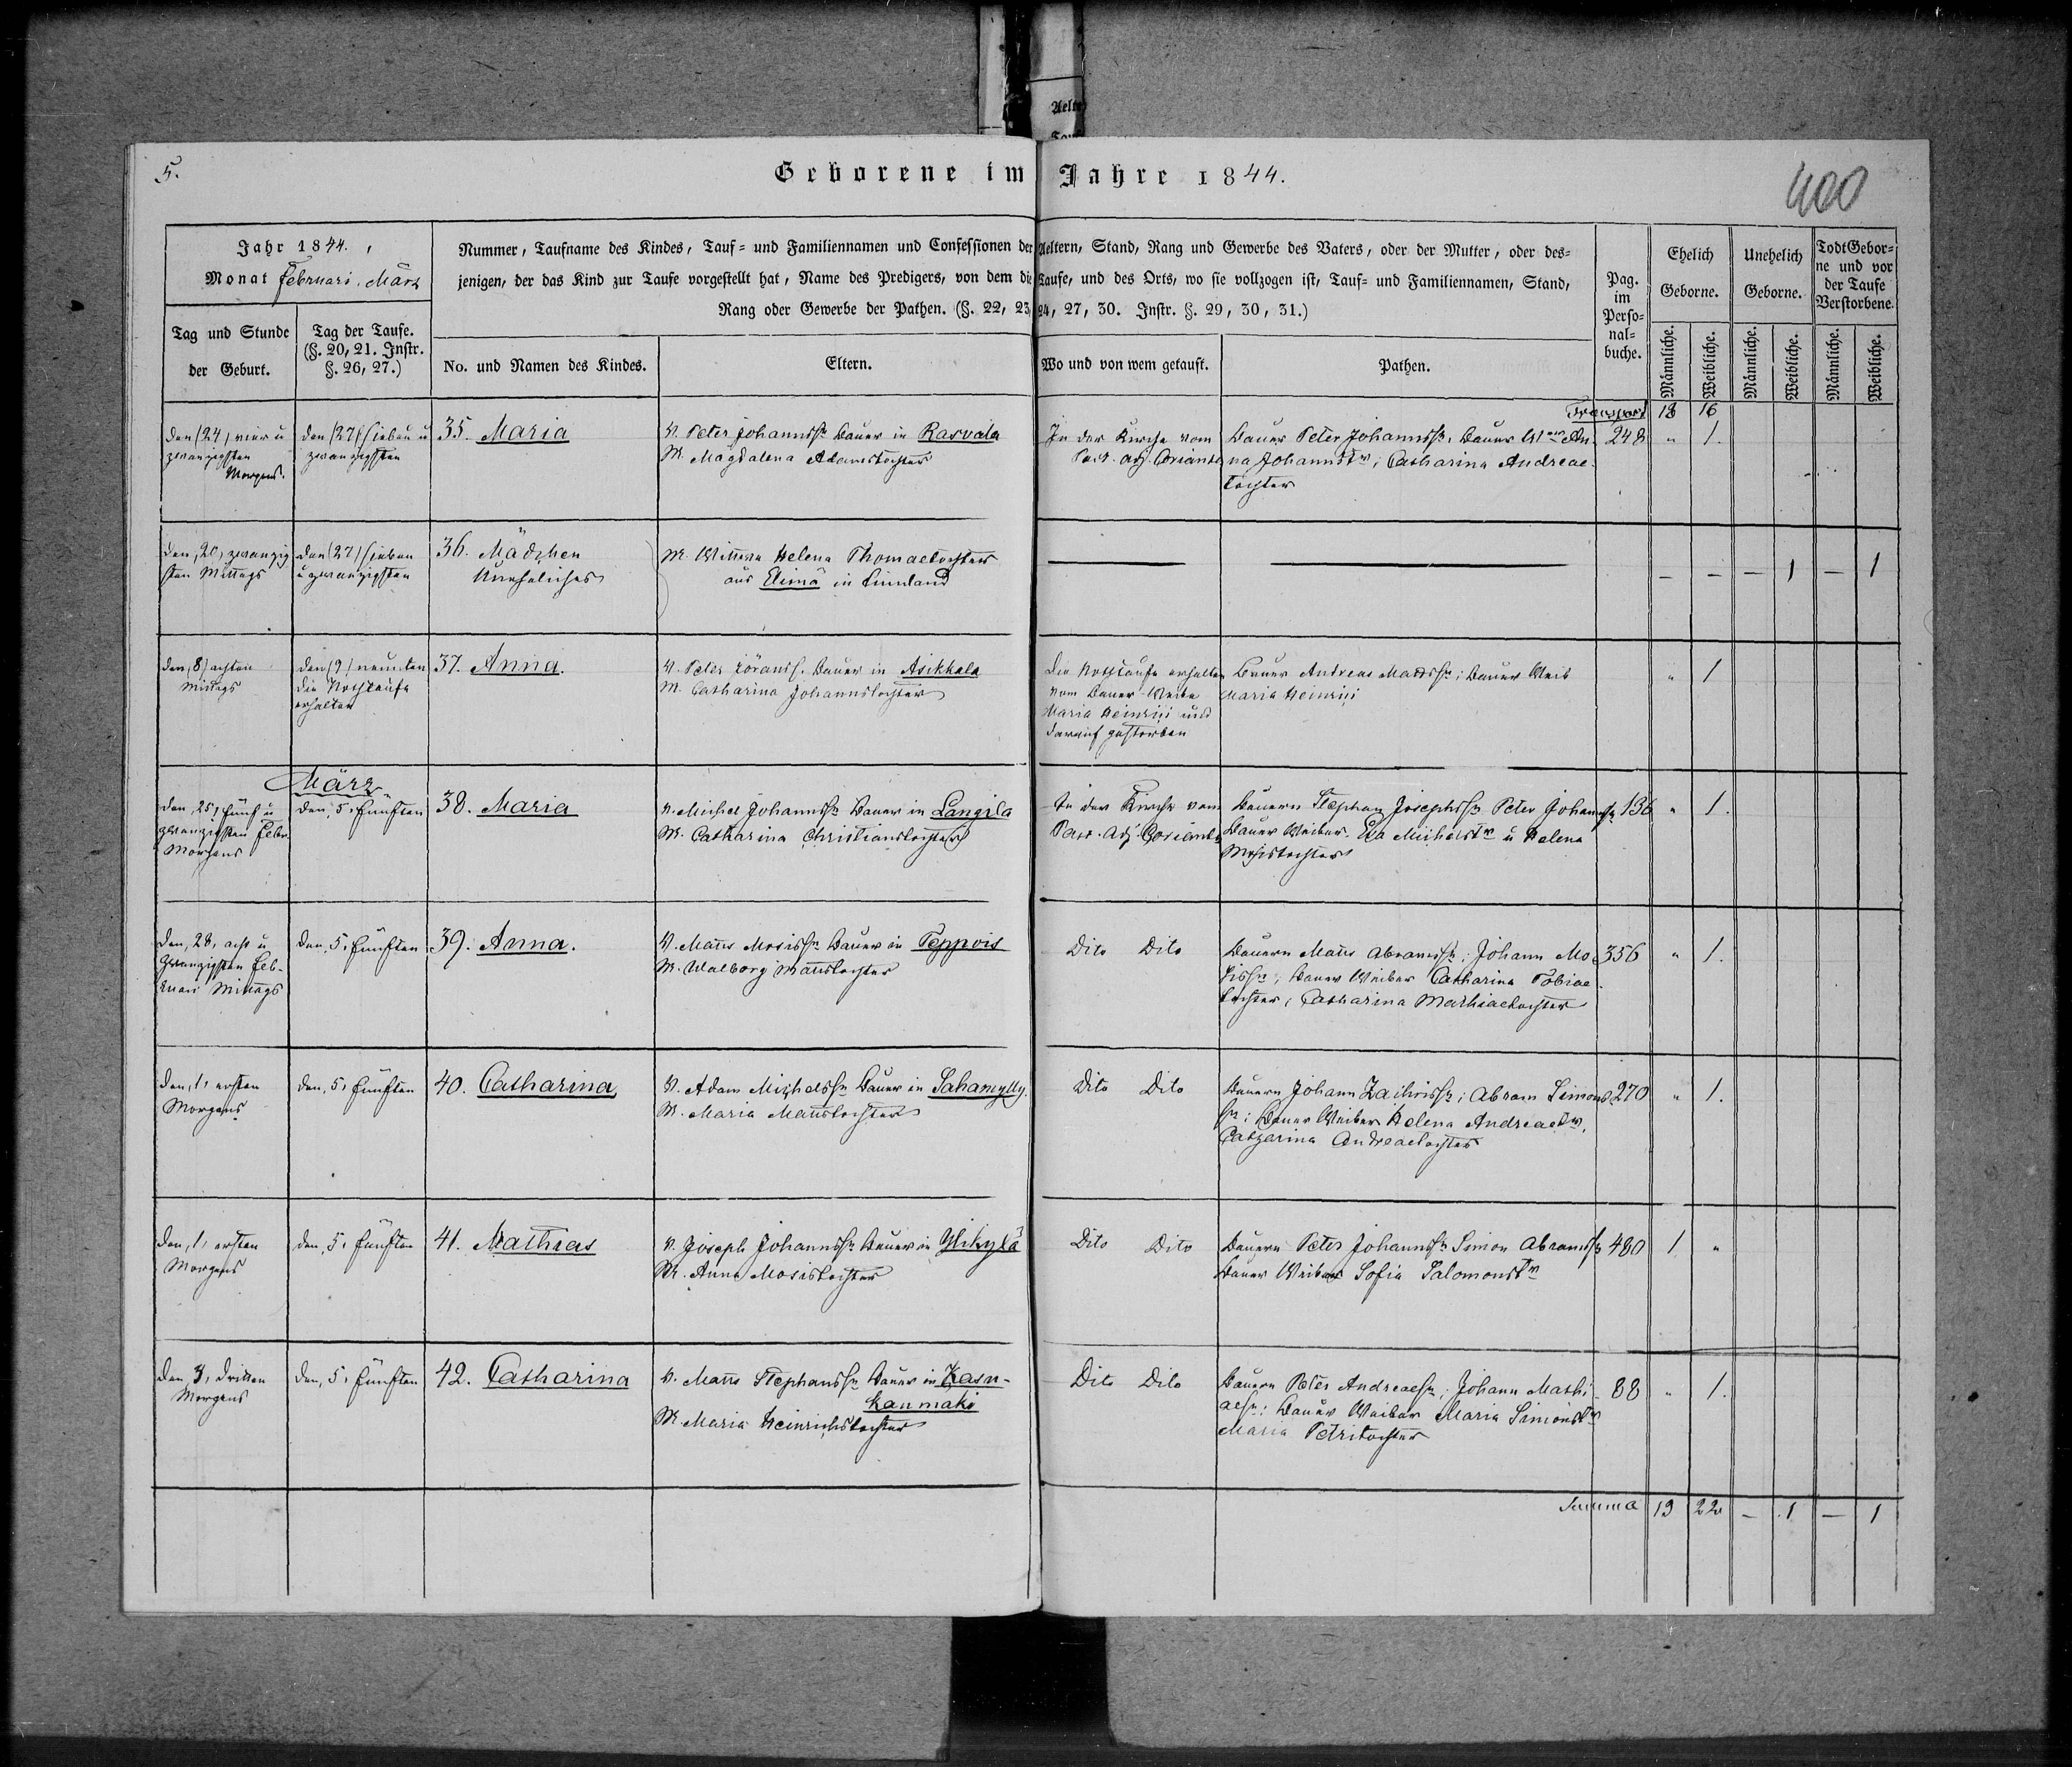 Aelte
5.
Geborene im Jahre 1844.
400
Jahr 1844.
Monat Februari. März
Nummer, Taufname des Kindes, Tauf= und Familiennamen und Confessionen der Aeltern, Stand, Rang und Gewerbe des Vaters, oder der Mutter, oder des=
jenigen, der das Kind zur Taufe vorgestellt hat, Name des Predigers, von dem die Taufe, und des Orts, wo sie vollzogen ist, Tauf= und Familiennamen, Stand,
Rang oder Gewerbe der Pathen. (§. 22, 23, 24, 27, 30. Instr. §. 29, 30, 31.)
Tag und Stunde
der Geburt.
Tag der Taufe.
(§. 20, 21. Instr.
§. 26, 27.)
No. und Namen des Kindes.
Eltern.
Wo und von wem getauft.
Pathen.
Pag.
im
Perso=
nal=
buche.
Ehelich
Geborne.
Unehelich
Geborne.
Todt Gebor=
ne und vor
der Taufe
Verstorbene.
Männliche.
Weibliche.
Männliche.
Weibliche.
Männliche.
Weibliche.
Transport 18 16
den (24) vier u
zwanzigsten
Morgens.
den (27) sieben u
zwanzigsten
35. Maria
V. Peter Johannssn Bauer in Rasvala
M. Magdalena Adamstochter
In der Kirche vom
Past. adj.
Bauer Peter Johannssn, Bauer An-
na Johannstr; Catharina Andreae-
tochter
248 " 1.
den, 20, zwanzig
sten Mittags
den (27) sieben
u zwanzigsten
36. Mädchen
Uneheliches
M. Wittwe Helena Thomaetochter
aus Elimä in Finnland
— — — 1 — 1
den, (8) achten
Mittags
den (9) neunten
die Nothtaufe
erhalten
37. Anna.
V. Peter Göranss. Bauer in Asikkala
M. Catharina Johannstochter
Die Nothtaufe erhalten
vom Bauer-Weibe
Maria Heinrici und
darauf gestorben
Bauer Andreas Mattssn; Bauer Weib
Maria Heinrici
" 1
März.
den, 25, fünf u
zwanzigsten Febr.
Morgens
den, 5, fünften
38. Maria
V. Michel Johannssn Bauer in Langila
M. Catharina Christianstochter
In der Kirche vom
Past. Adj.
Bauern Stephan Josephssn Peter Johannssn
Bauer Weiber. Eva Michelstr u Helena
136 " 1.
den, 28, acht u
zwanzigsten Feb-
ruari Mittags
den, 5, fünften
39. Anna.
V. Matts Mosissn Bauer in Peppois
M. Walborg Mattstochter
Dito Dito
Bauern Matts Abramssn; Johann Mo-
sissn; Bauer Weiber Catharina Tobiae
tochter, Catharina Mathiaetochter
356 " 1.
den, 1, ersten
Morgens
den, 5, fünften
40. Catharina
V. Adam Michelssn Bauer in Sahamylly.
M. Maria Mattstochter
Dito Dito
Bauern Johann Zachrissn; Abram Simons
sn; Bauer Weiber Helena Andreaetr,
Catharina Andreaetochter
270 " 1.
den, 1, ersten
Morgens
den, 5, fünften
41. Mathias
V. Joseph Johannssn Bauer in Ylikylä
M. Anna Mosistochter
Dito Dito
Bauern Peter Johannssn Simon Abramssn
Bauer Weiber Sofia Salomonstr
480 1 "
den 3, dritten
Morgens
den, 5, fünften
42. Catharina
V. Matts Stephanssn Bauer in Kasu-
kanmäki
M. Maria Heinrichstochter
Dito Dito
Bauern Peter Andreaesn; Johann Mathi-
aesn: Bauer Weiber Maria Simonstr
Maria Petritochter
88 " 1.
Summa 19 22 — 1 — 1